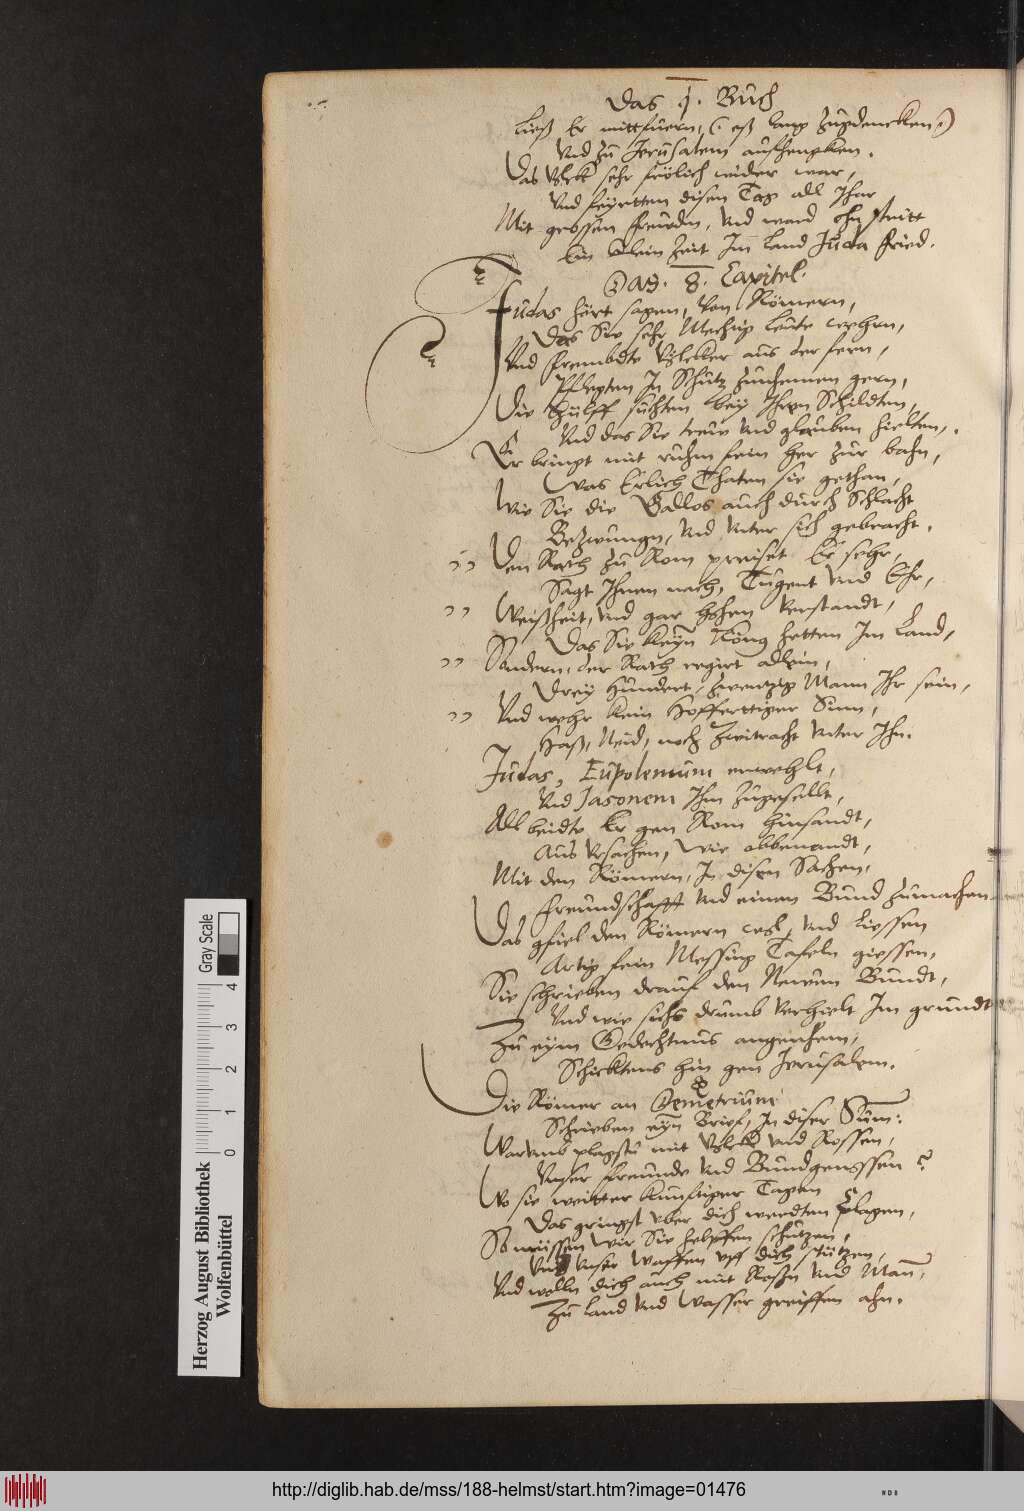 Das j. Buch
Ließ Er mittfuern, (: eß lang zugedencken :)
Vnd zu Jerusalem auffhengken.
Das Volck sehr frölich wider war,
Vnd feyrtten disen Tag all Ihar
Mit grossen freuden, Vnd ward ohn stritt
Ein klein Zeit Im Land Juda fried.
Das. 8. Capitel.
Judas hört sagen, Von Römern,
Das Sie sehr Mechtig leute wehrn,
Vnd frembdte Völcker aus der fern,
Pflegten In Schutz zunehmen gern,
Die Hülff suchten bey Ihren Schildten,
Vnd das Sie treue Vnd glauben hielten,
Er bringt mit ruhm fein her zur bahn,
Was Erlich Thaten sie gethan,
Wie Sie die Gallos auch durch Schlacht
Bezwungen, Vnd Vnter sich gebracht.
Den Rath zu Rom preiset Er sehr,
Sagt Ihnen nach, Tugent Vnd Ehr,
Weißheit, Vnd gar hohen Verstandt,
Das Sie keyn König hetten Im Land,
Sondern, der Rath regirt allein,
Drey hundert, zwentzig Mann Ihr sein,
Vnd wehr kein hoffertiger Sinn,
Haß, Neid, noch Zwitracht Vnter Ihn.
Judas, Eupolemum erwehlt,
Vnd Jasonem Ihm zugesellt,
All beidte Er gen Rom hinsandt,
Aus Vrsachen, Wie obbenandt,
Mit den Römern, In disen Sachen,
Freundschafft Vnd einen Bund zumachen
Das gfiel den Römern wol, Vnd liessen
Artig fein Messing Tafeln giessen,
Sie schrieben drauf den Newen Bundt,
Vnd wie sichs drumb Verhielt Im grundt
Zu eym Gedechtnus angenehm,
Schicktens hin gen Jerusalem.
Die Römer an Demetrium
Schrieben eyn Brief, In diser Sum:
Warumb plagstu mit Volck Vnd Rossen,
Vnser freunde Vnd Bundgenossen?
Wo sie weitter kunftiger Tagen
Das gringst vber dich werdten klagen,
So müssen Wir Sie helffen schützen,
Vnd Vnser Waffen vff dich stützen,
Vnd wolln dich auch mit Roßn Vnd Man,
Zu land Vnd Wasser greiffen ahn.
Herzog August Bibliothek
Wolfenbüttel
0 1 2 3 4
Gray Scale
http://diglib.hab.de/mss/188-helmst/start.htm?image=01476